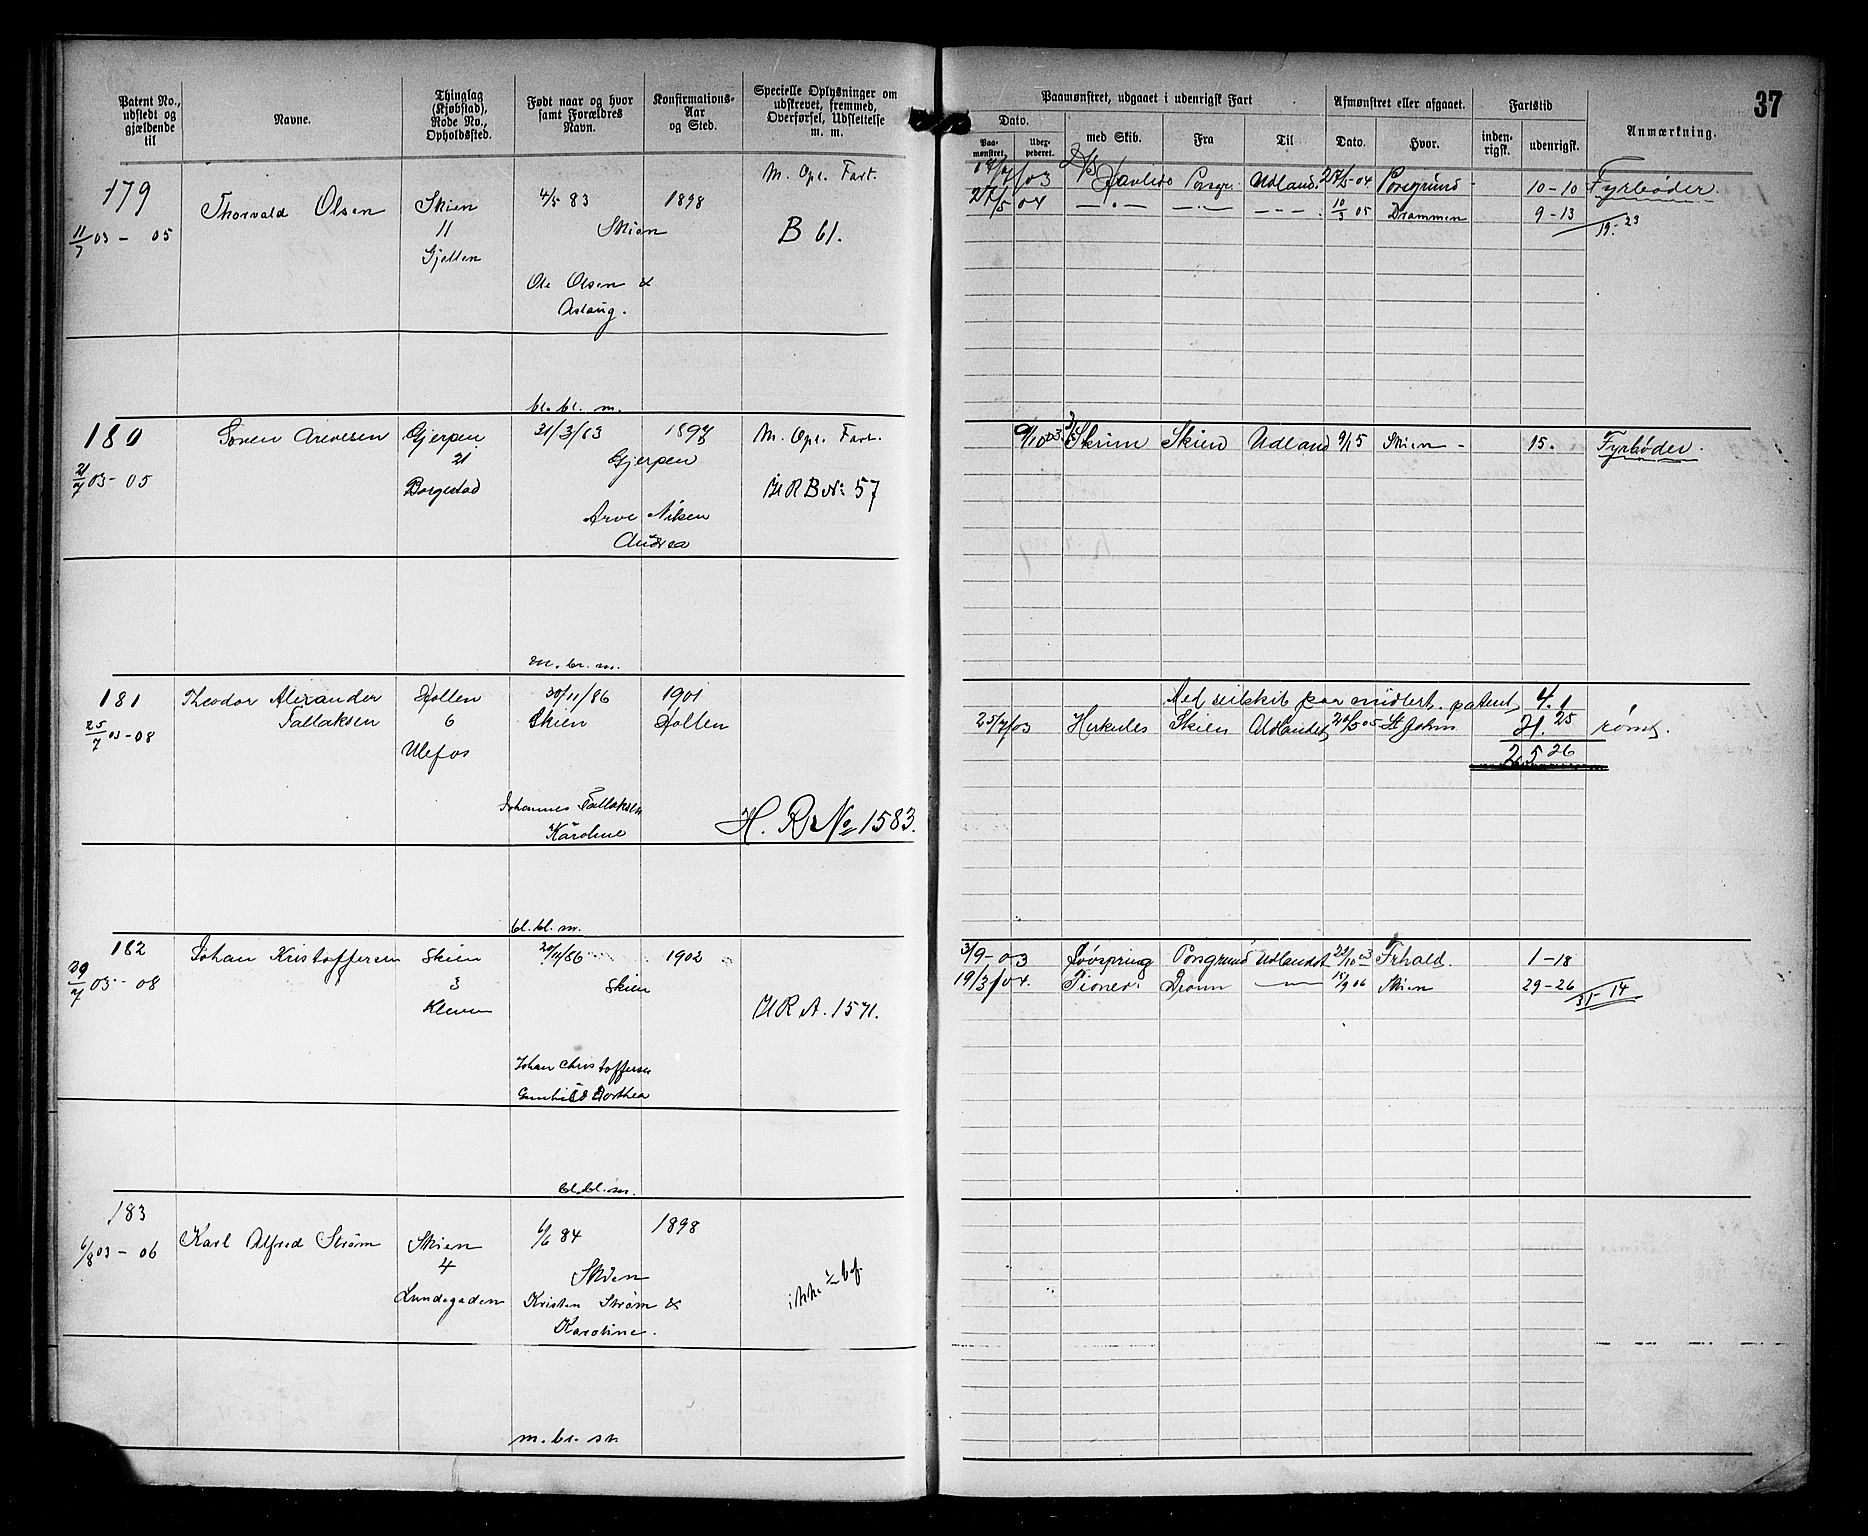 37
Patent No., udstedt og gjældende til
Navne.
Thinglag (Kjøbstad), Rode No., Opholdssted.
Født naar og hvor samt Forældres Navn.
Konfirmations-Aar og Sted.
Specielle Oplysninger om udskrevet, fremmed, Overførsel, Udslettelse m. m.
Paamønstret, udgaaet i udenrigsk Fart
Afmønstret eller afgaaet.
Fartstid
Anmærkning.
Dato.
med Skib.
Fra
Til
Dato.
Hvor.
inden-rigsk.
udenrigsk.
Paa-mønstret.
Uder-pederet.
179
11/7 03 - 05
Thorvald Olsen
Skien
11
Gjetten
4/5 83
Skien
Ole Olsen &
Aslaug.
bl. bl. m.
1898
M. Opl. Fart.
B 61.
Udland. 27/5-04 Porsgrund 10-10 Fyrbøder
27/5 04 10/3 05 Drammen 9-13
19-23
180
21/7 03 - 05
Søren Arvesen
Gjerpen
21
Borgestad
21/3/63
Gjerpen
Arve Nilsen
Andrea
m. br. m.
M. Opl. Fart.
HR B No 57
9/10 03 Skrim Skien Udland 9/1 5 Skien - 15. Fyrbøder.
181
25/7 03-08
Theodor Alexander
Tallaksen
Holten
6
Ulefos
30/11/86
Skien
Johannes Tallaksen
Karoline
bl. bl. m.
1901
Holten
H. R. No 1583.
Med seilskib paa midlert. patent, 4. 1
25/7/03 Herkules Skien Udlandet St Johns 21. 25 rømt.
25 26
182
29/7 03 - 08
Johan Kristoffersen
Skien
3
Kleven
20/11/86
Skien
Johan Christoffersen
Gunhild Dorthea
bl. bl. m.
1902
HR A. 1571.
3/9-03 Porsgrund Udlandet 22/10 03 Frhald. 1-18
19/3/04. Pioner. Dram 15/9 06 Skien 29-26
31-14
183
6/8 03 - 06
Karl Alfred Strøm
Skien
4
Lundegaden
6/6 84
Skien
Kristen Strøm &
Karoline.
m. br. m
1898
ikke